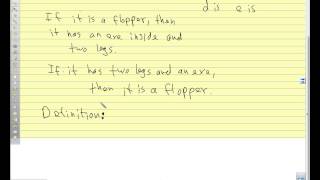 d is e is
If it is a flopper, then
it has an exe inside and
two legs.
If it has two legs and an exe,
then it is a flopper.
Definition: